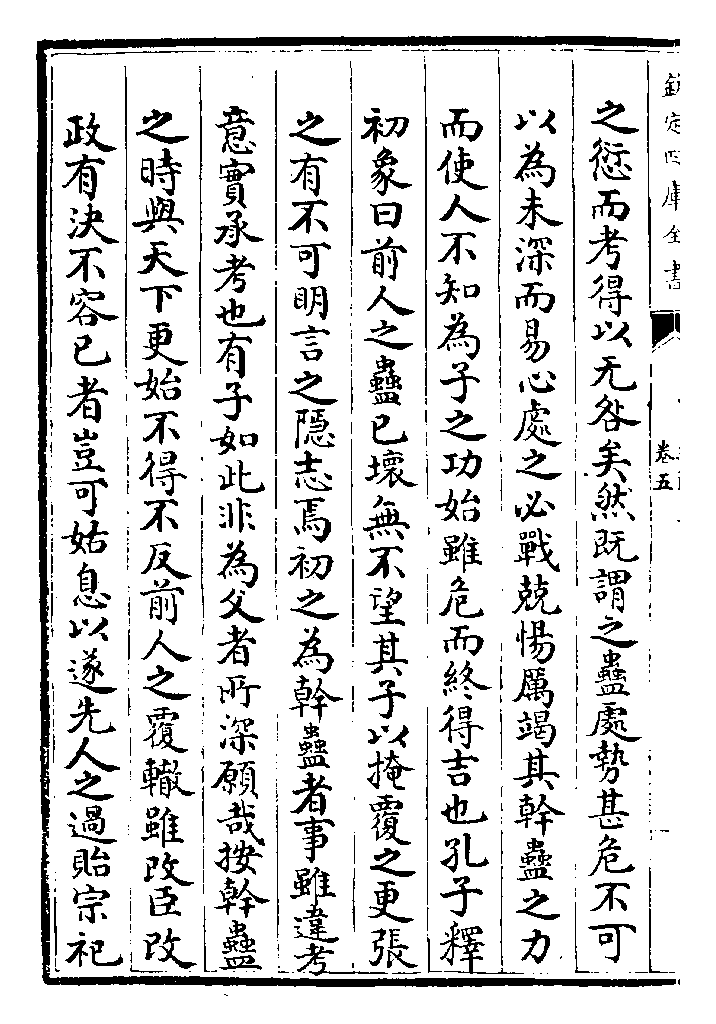 欽定四庫全書
卷五
之愆而考得以无咎矣然既謂之蠱處勢甚危不可
以為未深而易心處之必戰兢惕厲竭其幹蠱之力
而使人不知為子之功始雖危而終得吉也孔子釋
初象曰前人之蠱已壞無不望其子以掩覆之更張
之有不可明言之隱志焉初之為幹蠱者事雖違考
意實承考也有子如此非為父者所深願哉按幹蠱
之時與天下更始不得不反前人之覆轍雖改臣改
政有決不容已者豈可姑息以遂先人之過貽宗祀